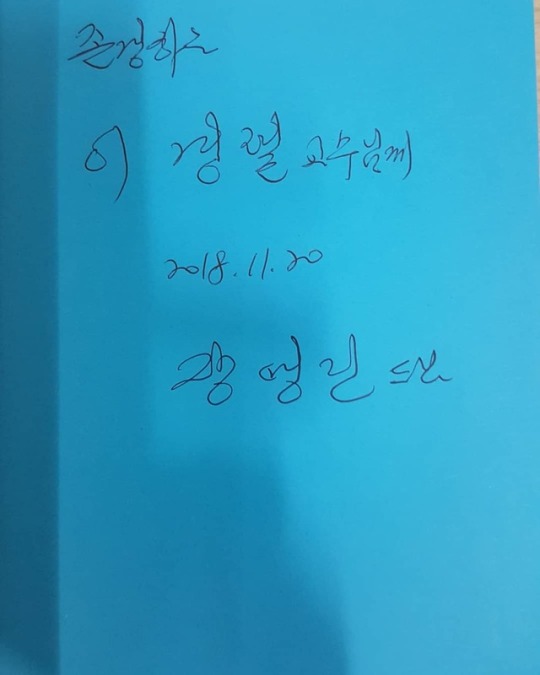 존경하는
이 경렬 교수님께
2018.11.20
장영민 드림